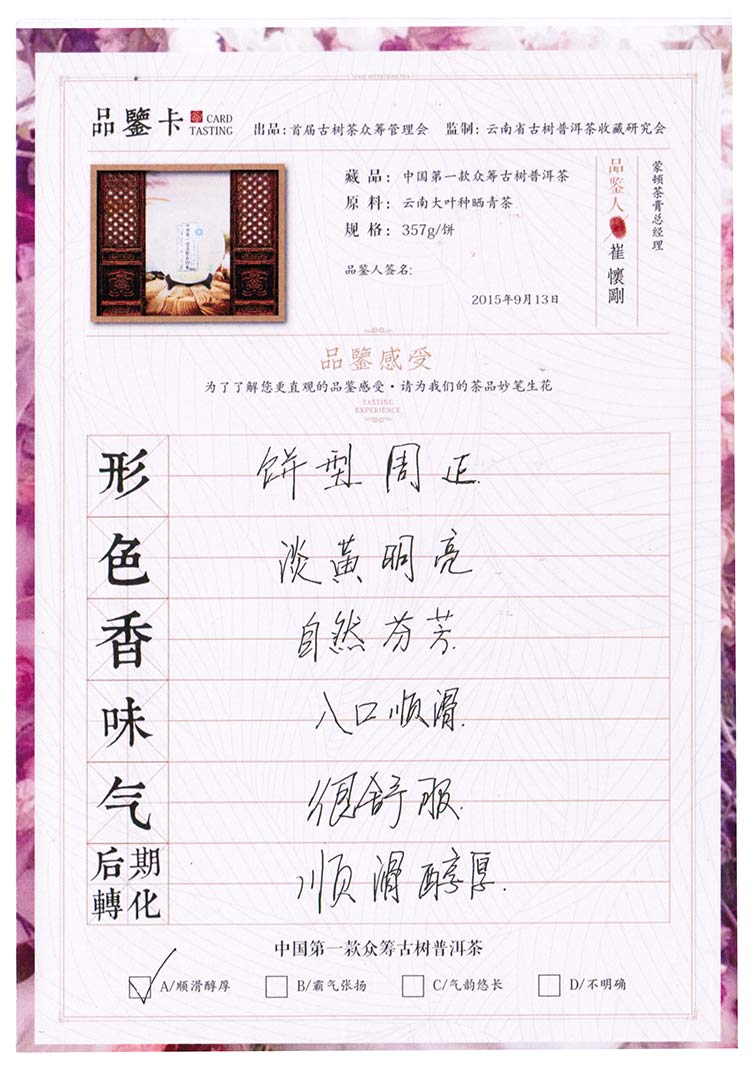 GOOD INTENTIONS TEA
品鑒卡 CARD TASTING
出品:首届古树茶众筹管理会 监制:云南省古树普洱茶收藏研究会
藏品:中国第一款众筹古树普洱茶
原料:云南大叶种晒青茶
规格:357g/饼
品鉴人签名:
2015年9月13日
品鉴人 崔懷剛
蒙顿茶膏总经理
品鑒感受
为了了解您更直观的品鉴感受·请为我们的茶品妙笔生花
TASTING
EXPERIENCE
形 饼型周正.
色 淡黄明亮
香 自然芬芳.
味 入口顺滑.
气 很舒服.
后期轉化 顺滑醇厚.
中国第一款众筹古树普洱茶
A/顺滑醇厚 B/霸气张扬 C/气韵悠长 D/不明确